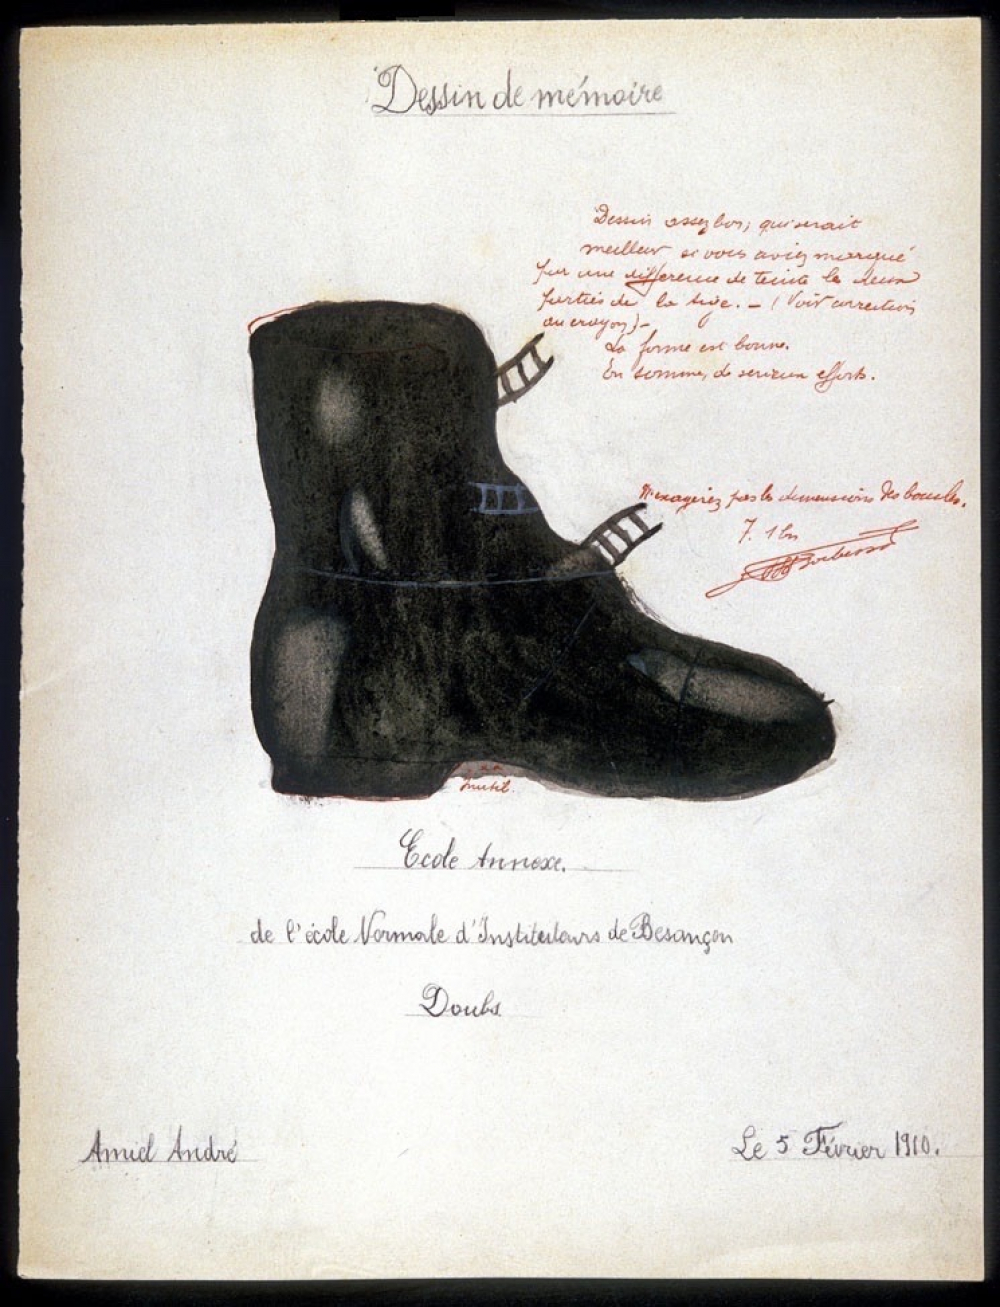 Dessin de mémoire
Dessin assez bon; qui serait
meilleur si vous aviez marqué
par une différence de teinte les deux
parties de la tige. - (Voir correction
au crayon) -
La forme est bonne.
En somme, de serieux efforts.
N'exagérez pas les dimensions des boucles.
7.
inutil.
Ecole Annexe.
de l'école Normale d'Instituteurs de Besançon
Doubs
Amiel André
Le 5 Février 1910.